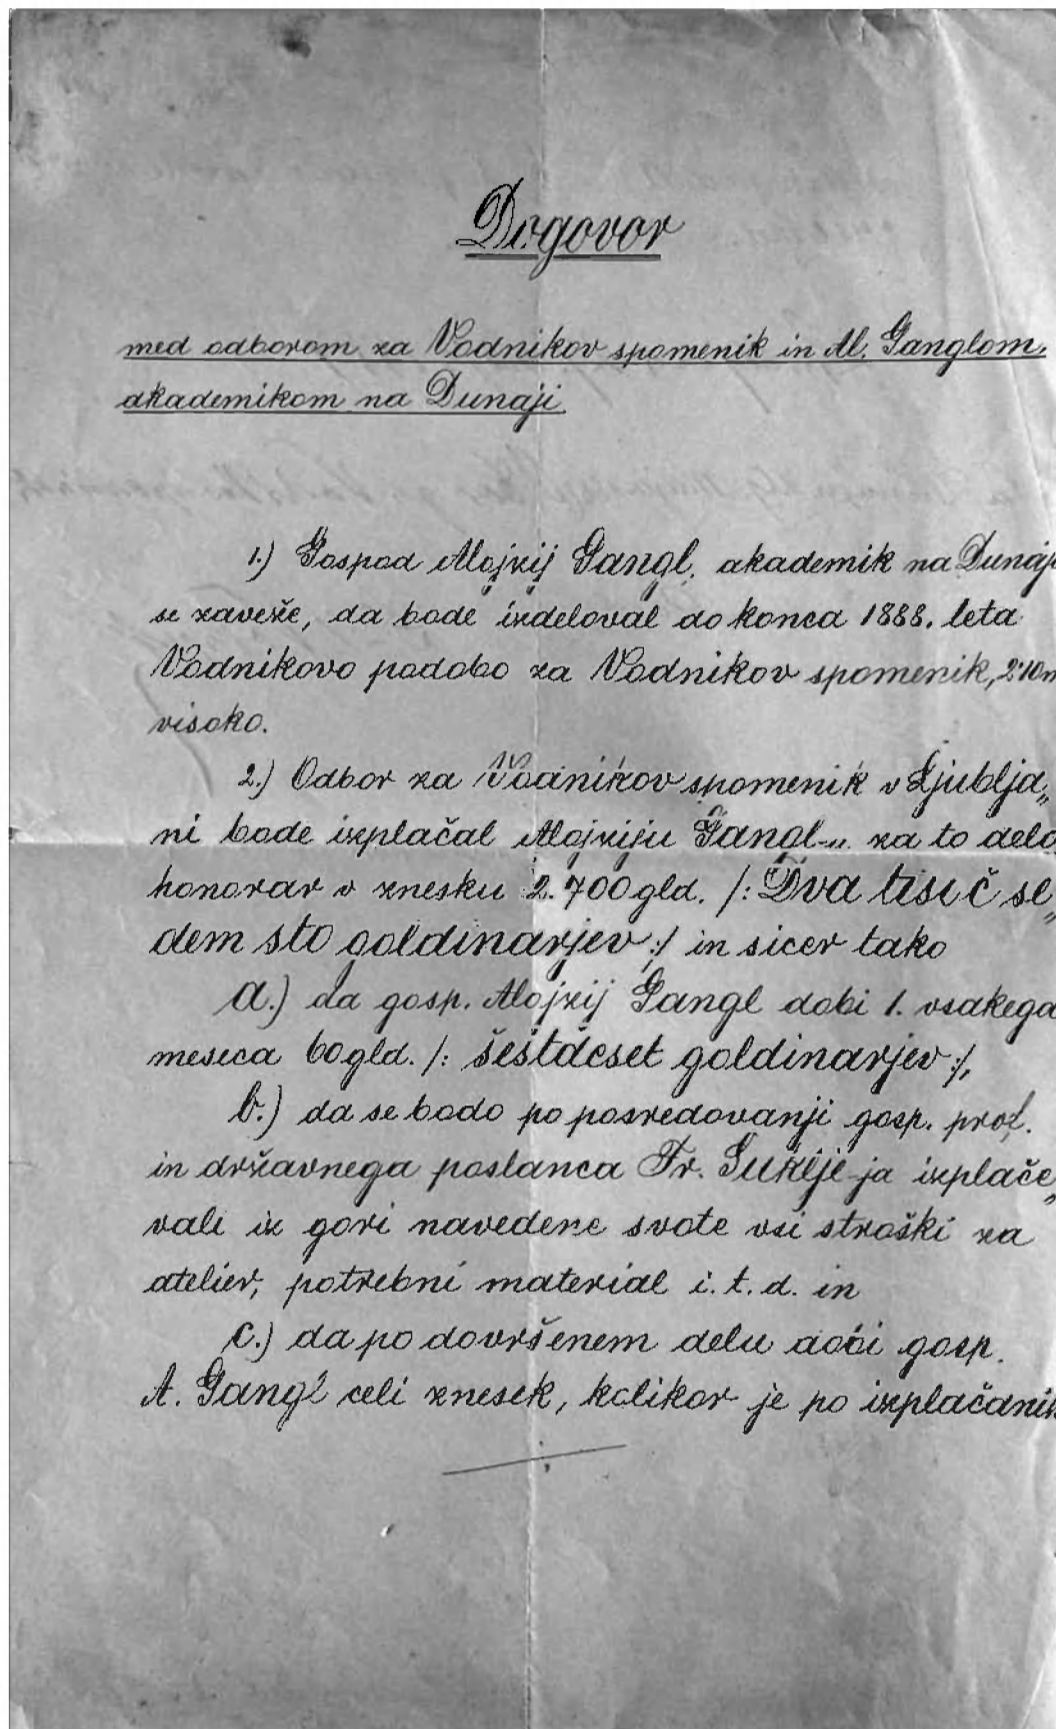 Dogovor
med odborom za Vodnikov spomenik in Al. Ganglom,
akademikom na Dunaji.
1.) Gospod Alojzij Gangl, akademik na Dunaji
se zaveže, da bode izdeloval do konca 1888. leta
Vodnikovo podobo za Vodnikov spomenik, 2·10m
visoko.
2.) Odbor za Vodnikov spomenik v Ljublja„
ni bode izplačal Alojziju Gangl-u za to delo
honorar v znesku 2.700 gld. /: Dva tisič se„
dem sto goldinarjev :/ in sicer tako
a.) da gosp. Alojzij Gangl dobi 1. vsakega
meseca 60 gld. /: šestdeset goldinarjev :/,
b.) da se bodo po posredovanji gosp. prof.
in državnega poslanca Fr. Šuklje-ja izplače„
vali iz gori navedene svote vsi stroški za
atelier, potrebni material i. t. d. in
c.) da po dovršenem delu dobi gosp.
A. Gangl celi znesek, kolikor je po izplačanih